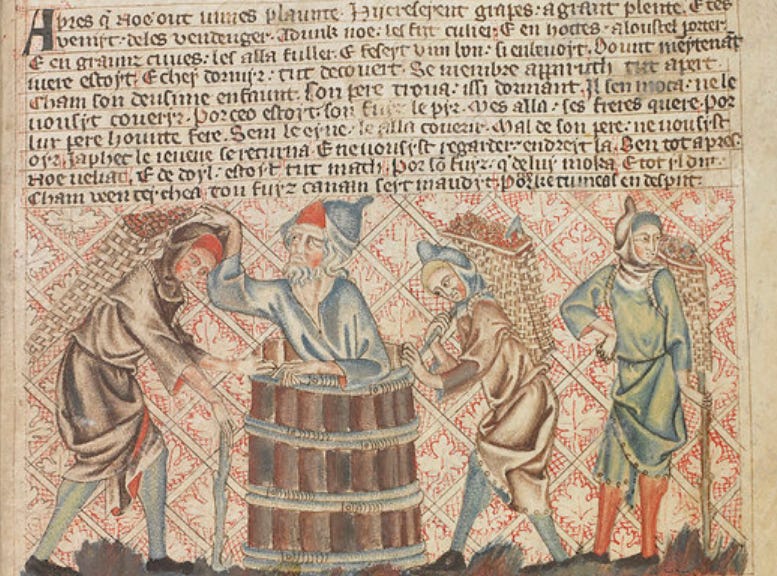 Apres q̃ Noe out uines plaunte. Puis creserent grapes a grant plente. E ces
avenist deles vendenger. Adunk noe les fist cuiler. E en hottes a loustel porter.
E en graunz cuues les alla fuller. E feseyt vin bon si en beuoyt. Dount meyntenãt
iuere estoyt. E chey dormir tut decouert. Se membre apparuth tut apert.
Cham son deusime enfaunt. son pere troua issi dormant. Il sen moca ne le
uousyt couerir. Por ceo estoyt son le pyr. Mes alla ses freres quere. Por
lur pere hounte fere. Sem le eyne le alla couerir. Mal de son pere ne uousyst
oyr. Japhet le ieuene se returna E ne uousyst regarder endreyt la. Ben tot apres
Noe ueliat. E de doyl estoyt tut math. Por sõ fuyz q̃ de luy moka. E tot yl dist
Cham ton fuyz canaan seyt maudyt. en despyt.